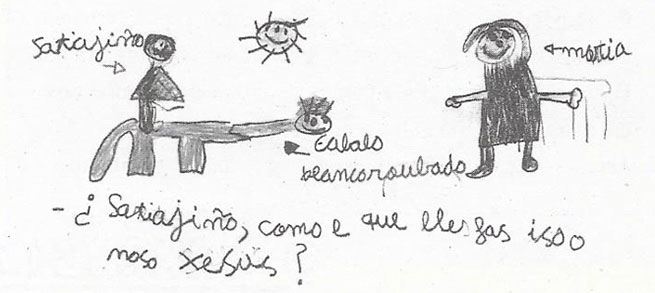 Satiajiño
matia
Cabalo
blancoroubado
- ¿ Satiajiño, como e que lles fas isoo
noso xesus?